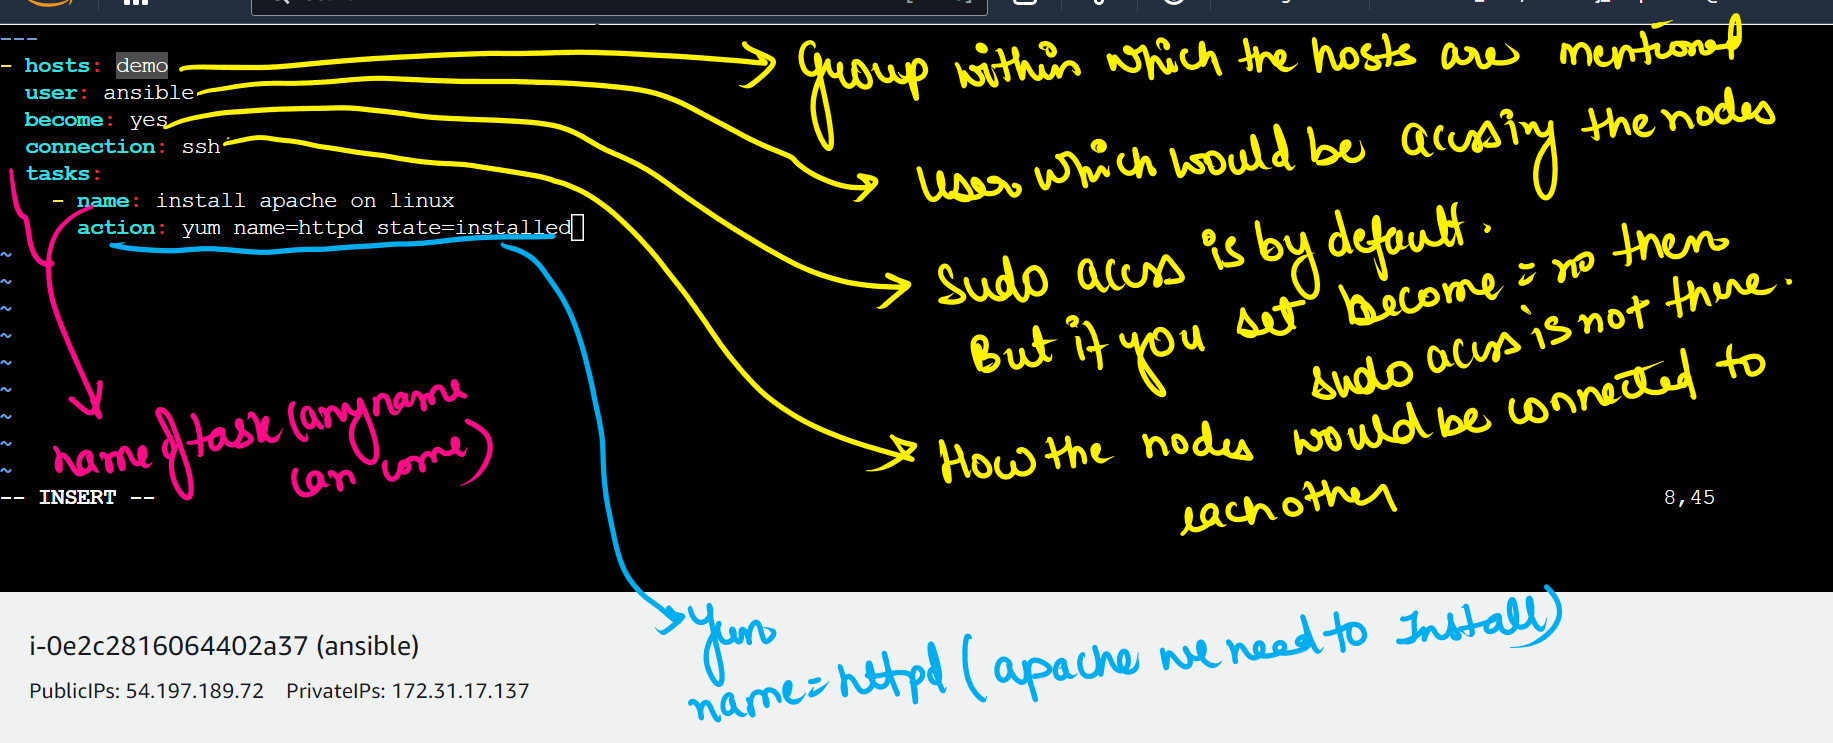 ---
- hosts: demo
user: ansible
become: yes
connection: ssh
tasks:
- name: install apache on linux
action: yum name=httpd state=installed
~
~
~
~
~
~
~
~
~
-- INSERT --
8,45
Group within which the hosts are mentioned
User which would be accssing the nodes
Sudo access is by default.
But if you set become = no then
sudo access is not there.
How the nodes would be connected to
each other
name of task (any name
can come)
yum
name=httpd (apache we need to Install)
i-0e2c2816064402a37 (ansible)
PublicIPs: 54.197.189.72 PrivateIPs: 172.31.17.137